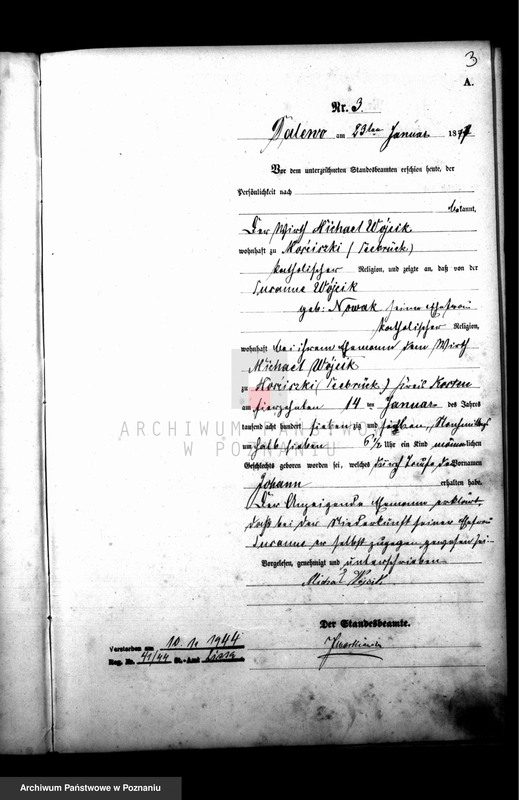 3
A.
Nr. 3.
Dalewo am 23ten Januar 1877
Vor dem unterzeichneten Standesbeamten erschien heute, der
Persönlichkeit nach
bekannt,
Der Wirth Michael Wójcik
wohnhaft zu Mościszki (Seebrück)
katholischer Religion, und zeigte an, daß von der
Susanna Wójcik
geb: Nowak seiner Ehefrau
katholischer Religion,
wohnhaft bei ihrem Ehemann dem Wirth
Michael Wójcik
zu Mościszki (Seebrück) Kreis Kosten
am vierzehnten 14 ten Januar des Jahres
tausend acht hundert sieben zig und sieben, Nachmittags
um halb sieben 6 1/2 Uhr ein Kind männlichen
Geschlechts geboren worden sei, welches durch Taufe die Vornamen
Johann erhalten habe.
Der Anzeigende Ehemann erklärt
daß bei der Niederkunft seiner Ehefrau
Susanna er selbst zugegen gewesen sei.
Vorgelesen, genehmigt und unterschrieben
Michał Wójcik
Der Standesbeamte.
Verstorben am 10. 1. 1944
Reg. Nr. 41/44 St.-Amt
ARCHIWUM PAŃSTWOWE
W POZNANIU
Archiwum Państwowe w Poznaniu